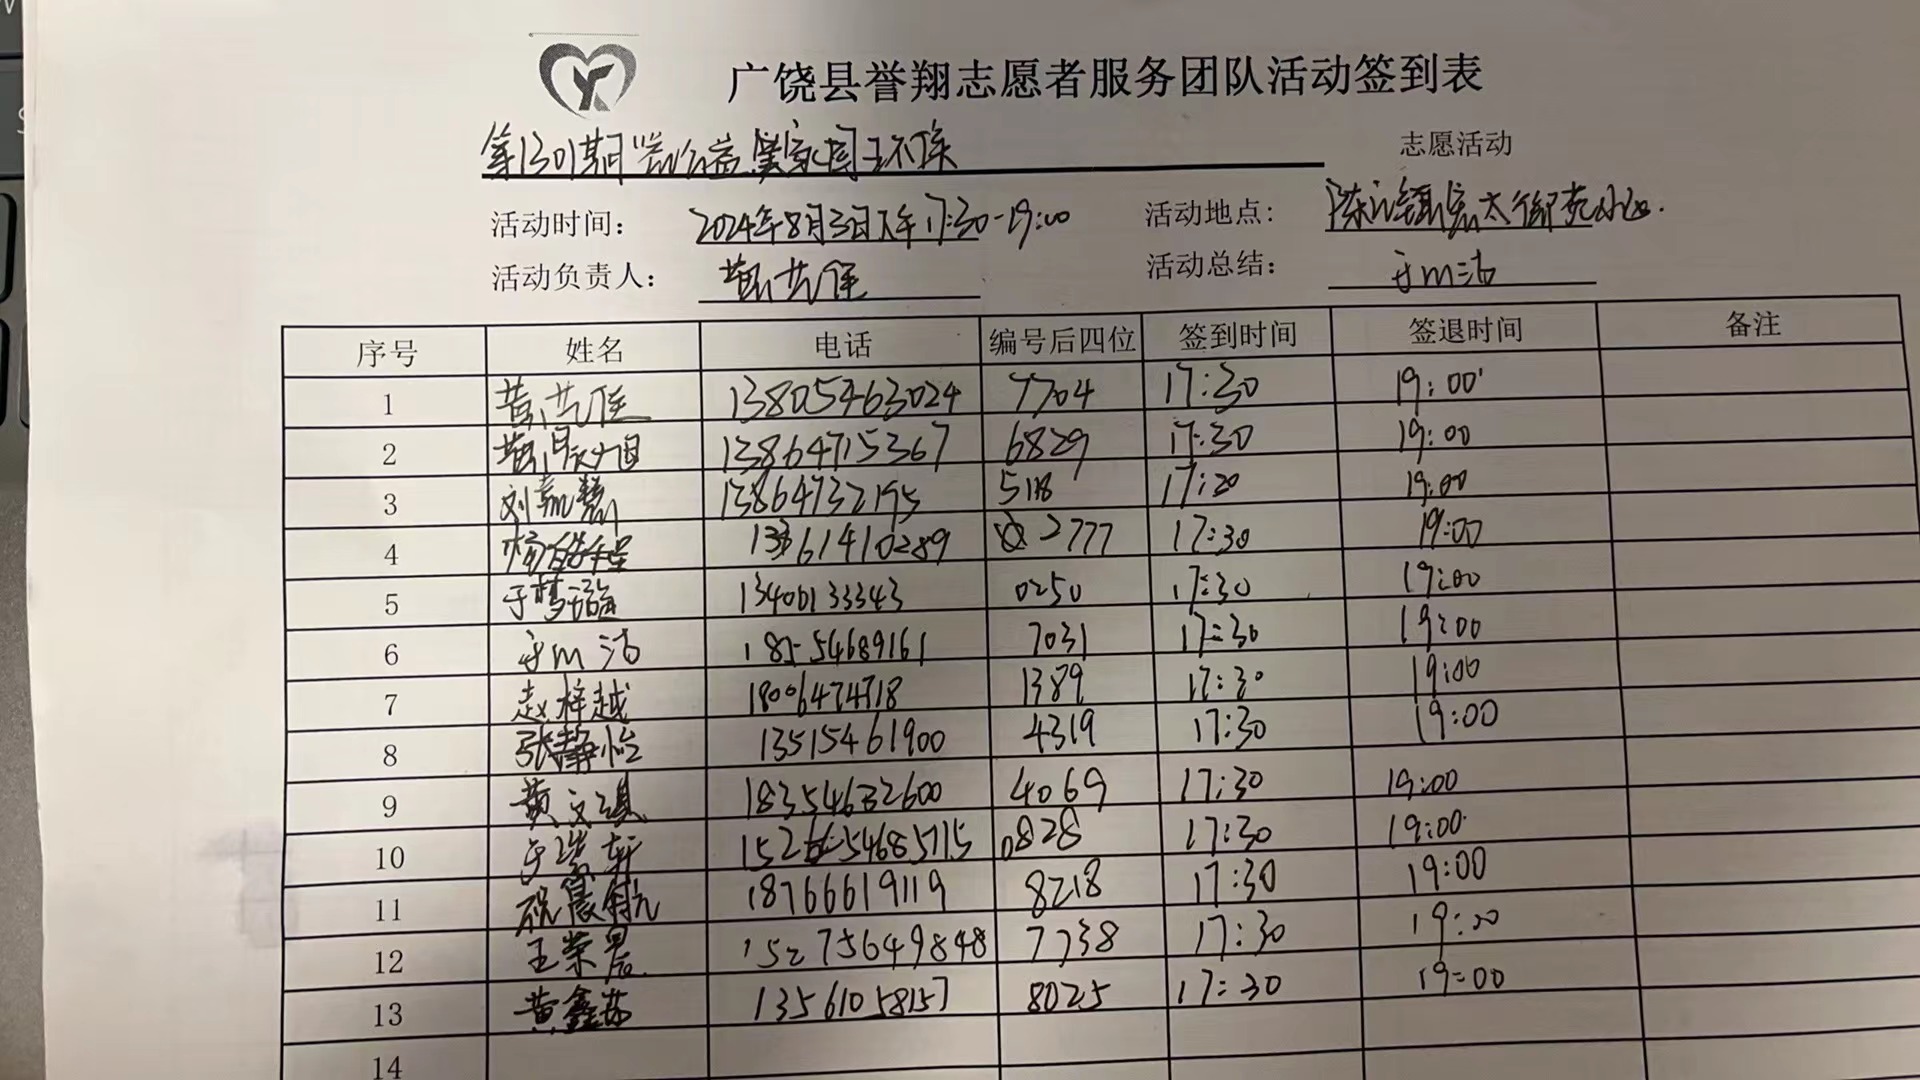 广饶县誉翔志愿者服务团队活动签到表
第1301期 公益 家园
志愿活动
活动时间: 2024年8月3日下午17:30-19:00 活动地点: 陈 镇 太 苑小区.
活动负责人: 黄艺佳 活动总结:
序号 姓名 电话 编号后四位 签到时间 签退时间 备注
1 黄艺佳 13805463024 7704 17:30 19:00
2 13864715367 6829 17:30 19:00
3 刘嘉慧 13864732195 5118 17:30 19:00
4 2777 17:30 19:00
5 于梦璇 13406133343 0250 17:30 19:00
6 18554689161 7031 17:30 19:00
7 赵梓越 18006474718 1389 17:30 19:00
8 张静怡 13515461900 4319 17:30 19:00
9 黄文琪 18354632600 4069 17:30 19:00
10 0828 17:30 19:00
11 祝晨航 18766619119 8218 17:30 19:00
12 王荣晨 15275649848 7738 17:30 19:00
13 黄鑫茹 13561058157 8025 17:30 19:00
14